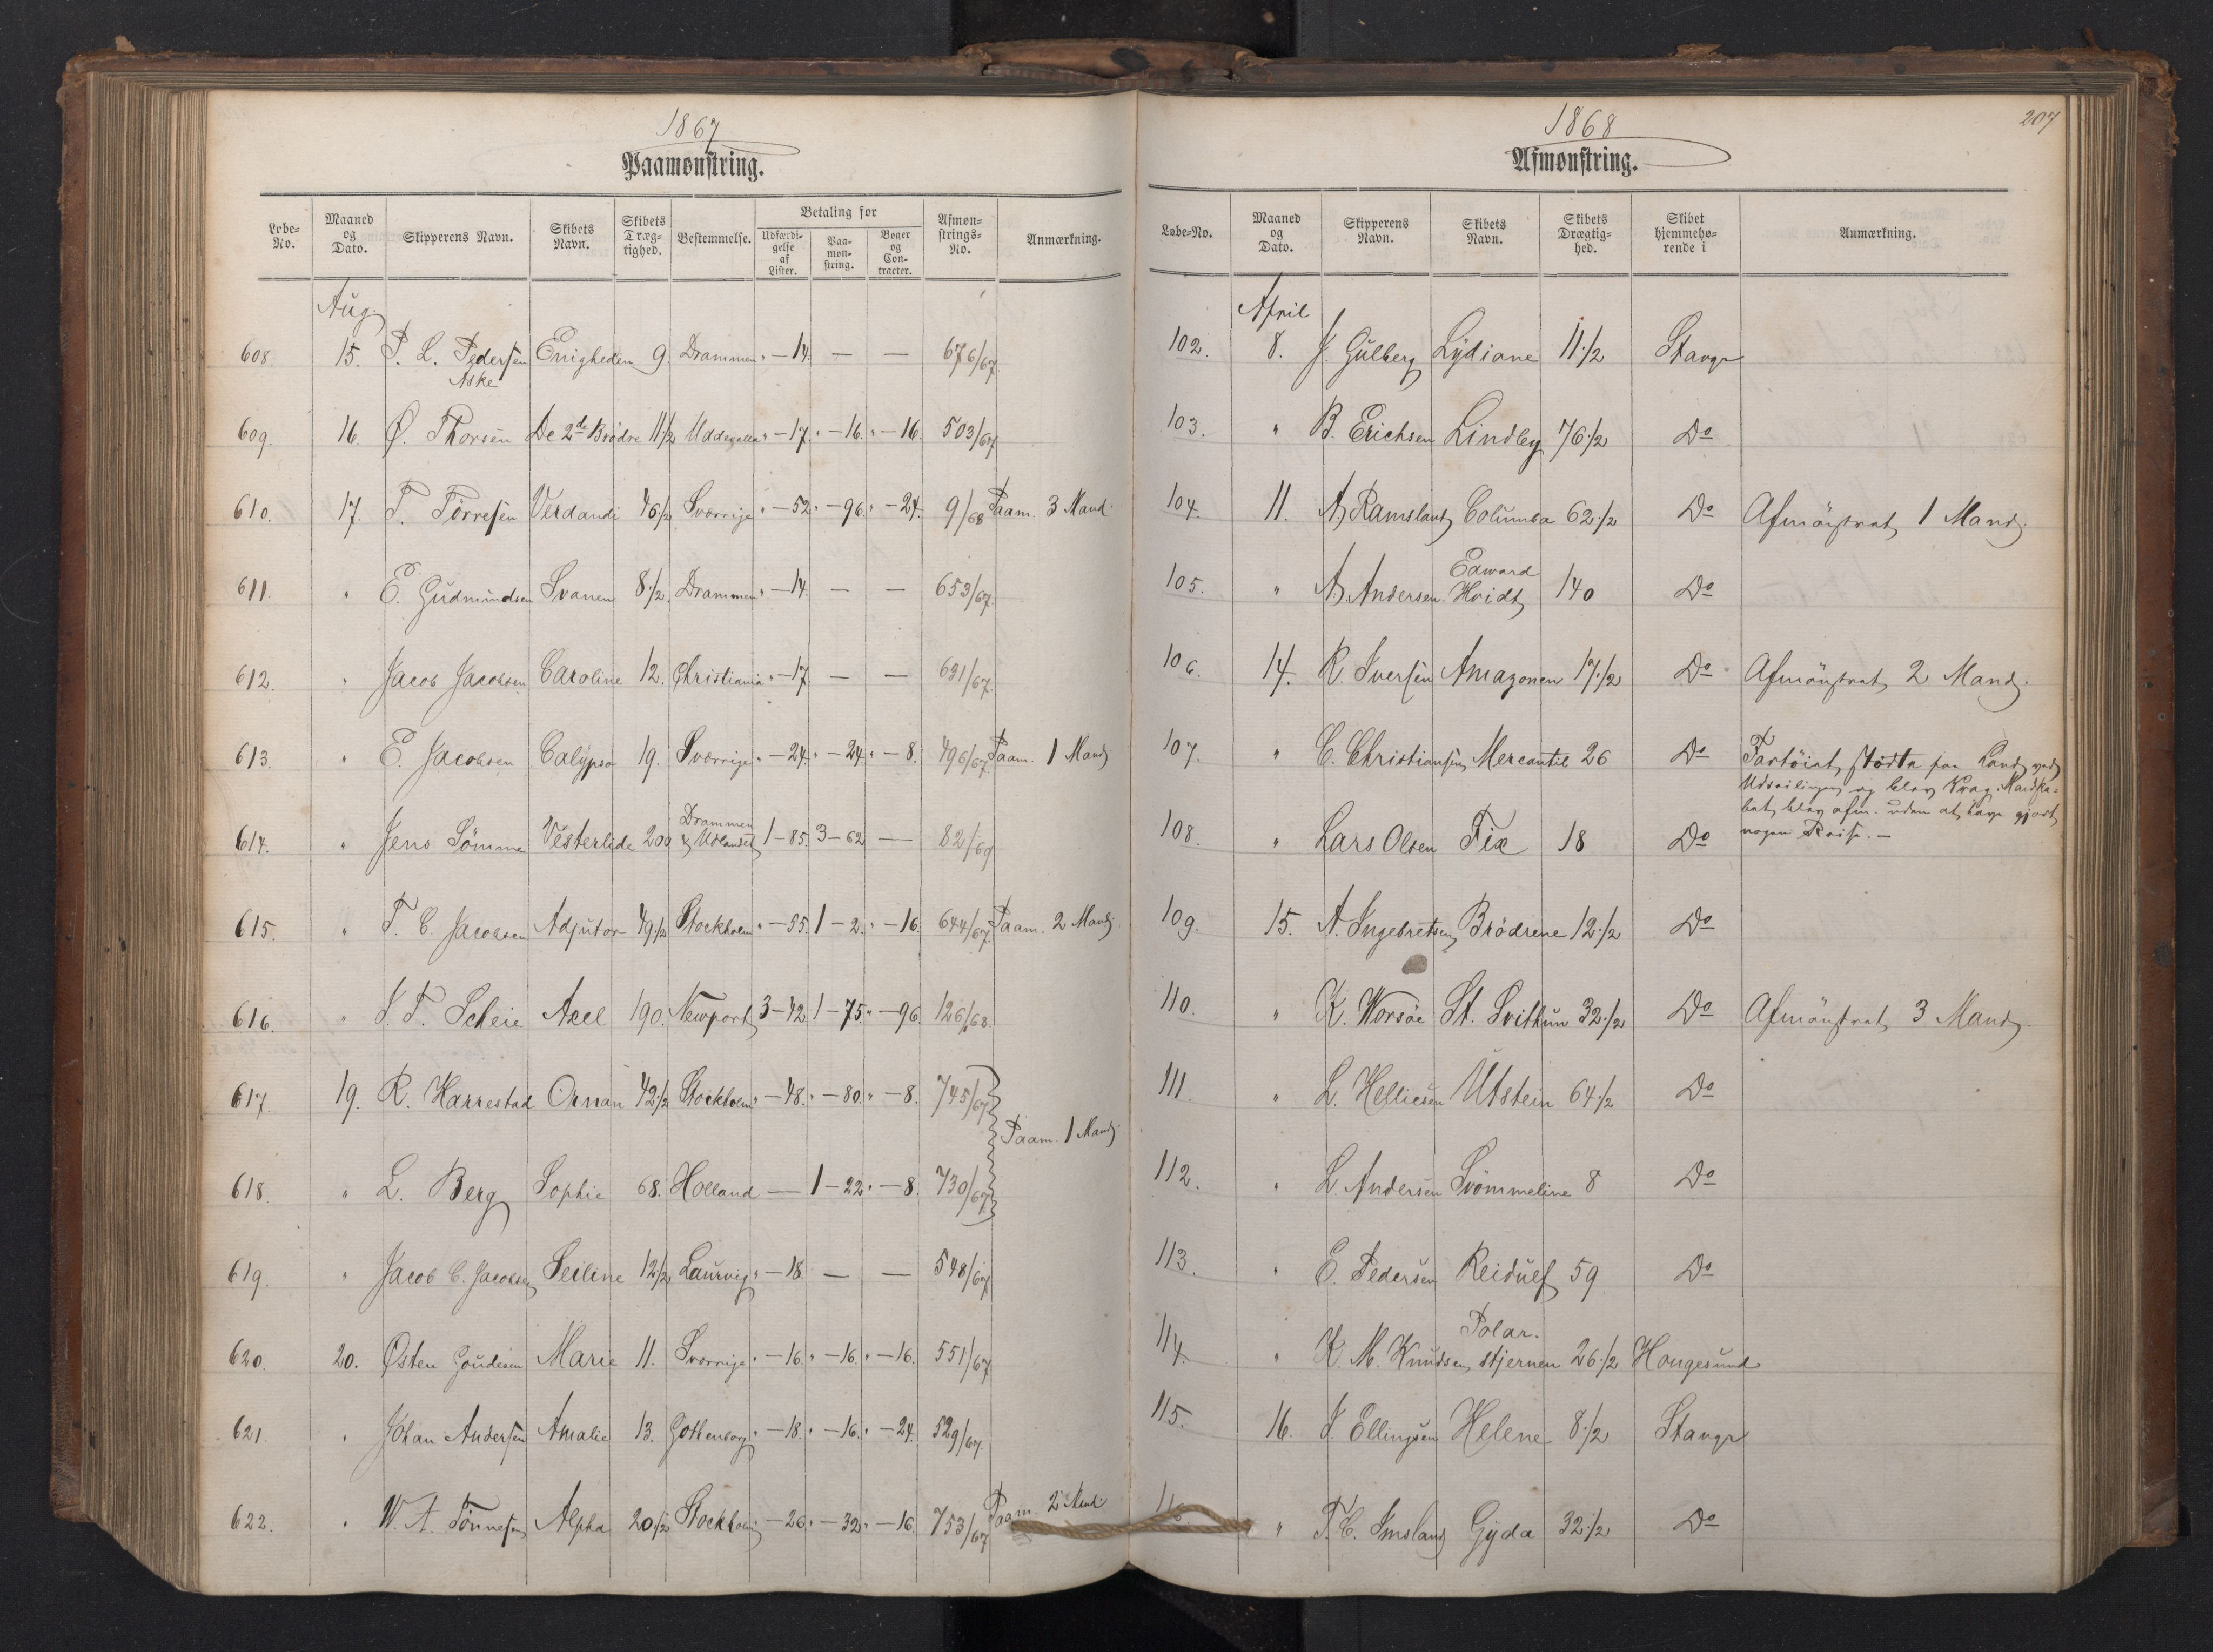 1867
Paamønstring.
Løbe-No. Maaned og Dato. Skipperens Navn. Skibets Navn. Skibets Dræg-tighed. Bestemmelse. Betaling for Udfærdi-gelse af Lister. Paa-møn-string. Bøger og Con-tracter. Afmøn-strings-No. Anmærkning.
Aug.
608. 15. P. L. Pedersen Enigheden 9. Drammen " - 14. — — 676/67
Aske
609. 16. Ø. Thorsen De 2de Brödre 11 1/2 Uddevalla " - 17. " - 16. " - 16. 503/67
610. 17. T. Törresen Verdandi 46 1/2 Sverrige " - 52. " - 96. " - 24. 9/68 Paam. 3 Mand.
611. " E. Gudmundsen Svanen 8 1/2. Drammen " - 14. — — 653/67.
612. " Jacob Jacobsen Caroline 12. Christiania " - 17. — — 631/67.
613. " E. Jacobsen Calypso 19. Sverrige " - 24. " - 24. " - 8. 496/67. Paam. 1 Mand
614. " Jens Sömme Vesterlide 200 Drammen & Udlandet 1 - 85. 3 - 62 — 82/69
615. " T. C. Jacobsen Adjutor 49 1/2 Stockholm " - 55. 1 - 2. " - 16. 644/67. Paam. 2 Mand.
616. " J. T. Scheie Axel 190. Newport 3 - 42. 1 - 75. " - 96. 126/68.
617. 19. R. Harrestad Ornan 42 1/2 Stockholm " - 48. " - 80. " - 8. 745/67
Paam. 1 Mand.
618. " L. Berg Sophie 68. Holland — 1 - 22. " - 8. 730/67
619. " Jacob C. Jacobsen Seiline 12 1/2 Laurvig " - 18. — — 548/67
620. 20. Østen Goudesen Marie 11. Sverrige " - 16. " - 16. " - 16. 551/67
621. " Johan Andersen Amalie 13. Gothenborg " - 18. " - 16. " - 24. 529/67.
622. " W. A. Tönnesen Alpha 20 1/2 Stockholm - 26. " - 32. " - 16. 753/67 Paam. 2 Mand.
207
1868
Afmønstring.
Løbe-No. Maaned og Dato. Skipperens Navn. Skibets Navn. Skibets Drægtig-hed. Skibet hjemmehø-rende i Anmærkning.
April
102. 8. J. Gulberg Lydiane 11 1/2 Stavgr
103. " B. Erichsen Lindby 76 1/2 Do
104. 11. A. Ramsland Columba 62 1/2 Do Afmönstret 1 Mand.
105. " A. Andersen Edward Hvidt 140 Do
106. 14. R. Iversen Amazonen 17 1/2 Do Afmönstret 2 Mand.
107. " C. Christiansen Mercantil 26 Do Fartöiet stödte paa Land ved
Udseilingen og blev Vrag. Mandska-
bet blev afm. uden at have gjort
nogen Reise. —
108. " Lars Olsen Fix 18 Do
109. 15. A. Ingebretsen Brödrene 12 1/2 Do
110. " K. Worsöe St. Svithun 32 1/2 Do Afmönstret 3 Mand.
111. " L. Helliesen Utstein 64 1/2 Do
112. " L. Andersen Svömmeline 8 Do
113. " E. Pedersen Reidulf 59 Do
114. " K. M. Knudsen Polar. stjernen 26 1/2 Hougesund
115. 16. J. Ellingsen Helene 8 1/2 Stavgr
" T. C. Imsland Gyda 32 1/2 Do